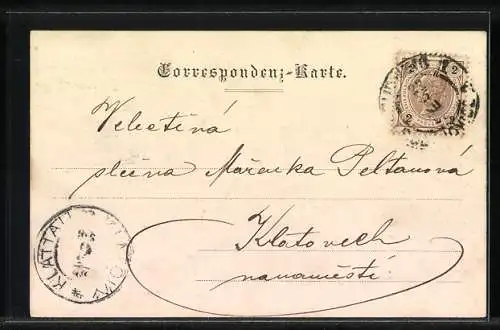 Correspondenz-Karte.
Velectěná
slečna Mařenka Peltanová
Klatovech
na náměstí
KLATTAU * KLATOVY *